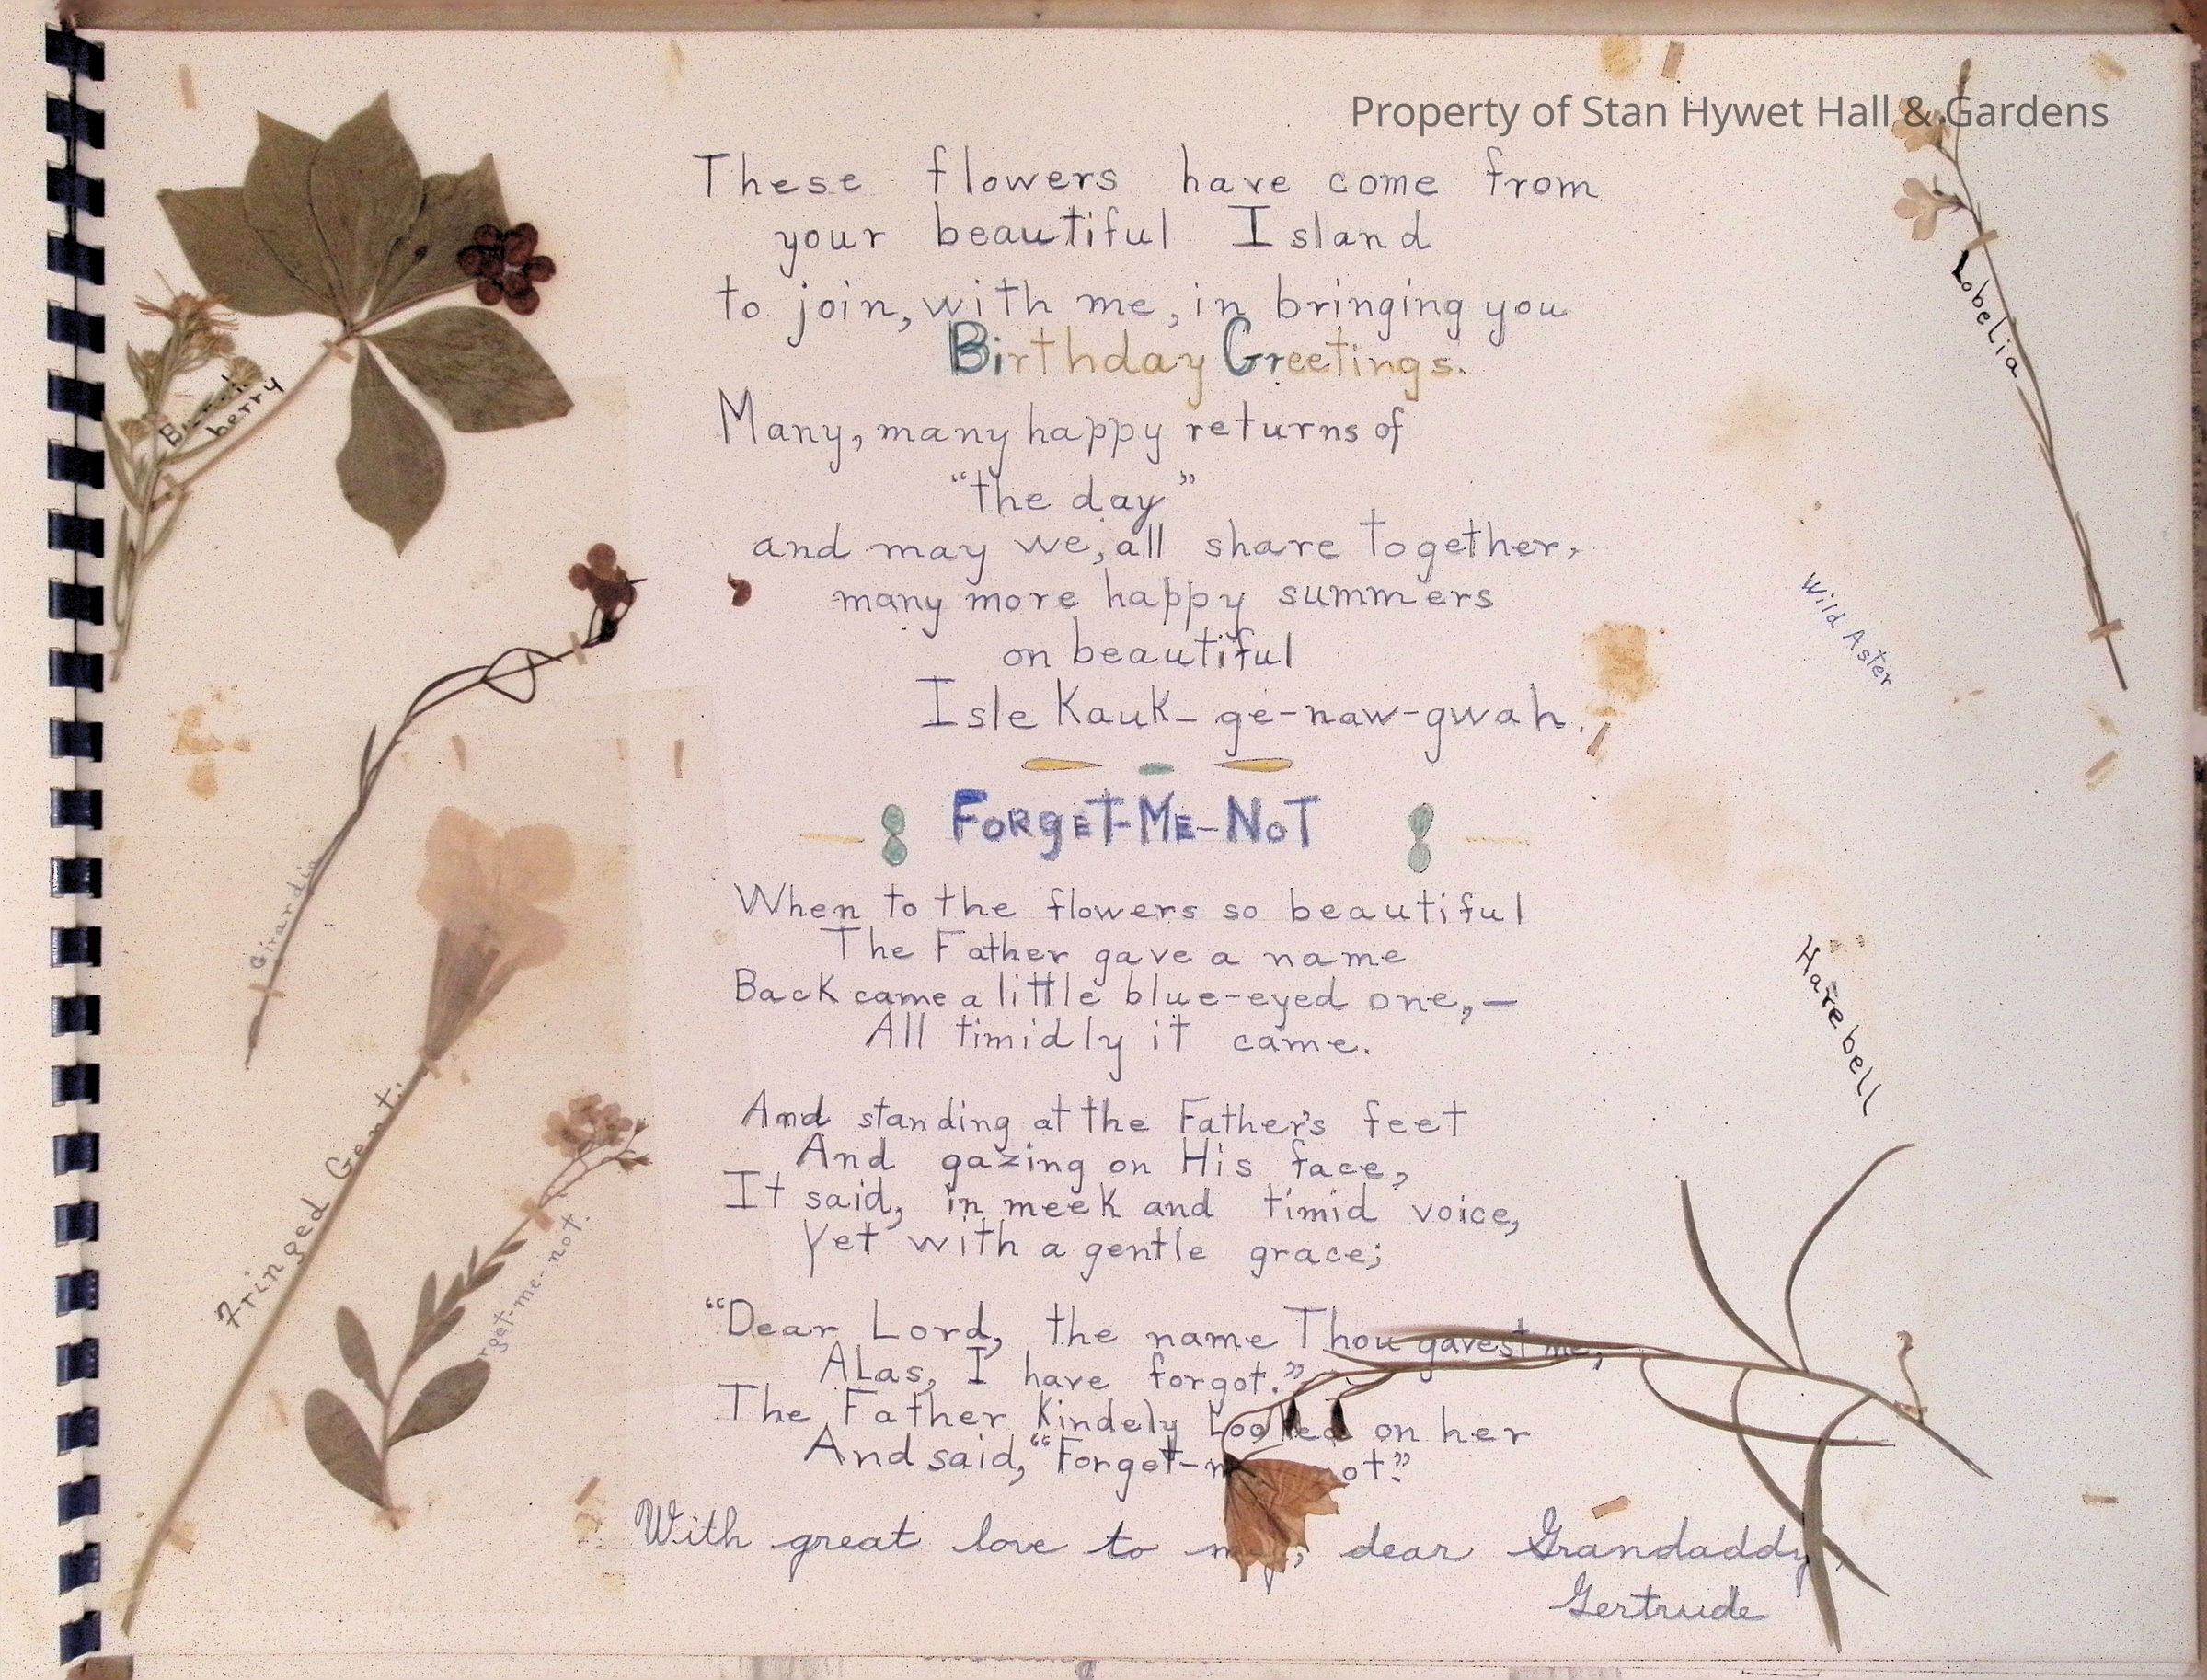 Property of Stan Hywet Hall & Gardens
These flowers have come from
your beautiful Island
to join, with me, in bringing you
Birthday Greetings.
Many, many happy returns of
"the day"
and may we, all share together,
many more happy summers
on beautiful
Isle Kauk-ge-naw-gwah.
Forget-Me-Not
When to the flowers so beautiful
The Father gave a name
Back came a little blue-eyed one,—
All timidly it came.
And standing at the Father's feet
And gazing on His face,
It said, in meek and timid voice,
Yet with a gentle grace;
"Dear Lord, the name Thou gavest me,
ALas, I have forgot."
The Father Kindely Looked on her
And said, "Forget-me-not."
With great love to my, dear Grandaddy
Gertrude
berry
Girardia
Fringed Gent.
rget-me-not.
Lobelia
Wild Aster
Harebell